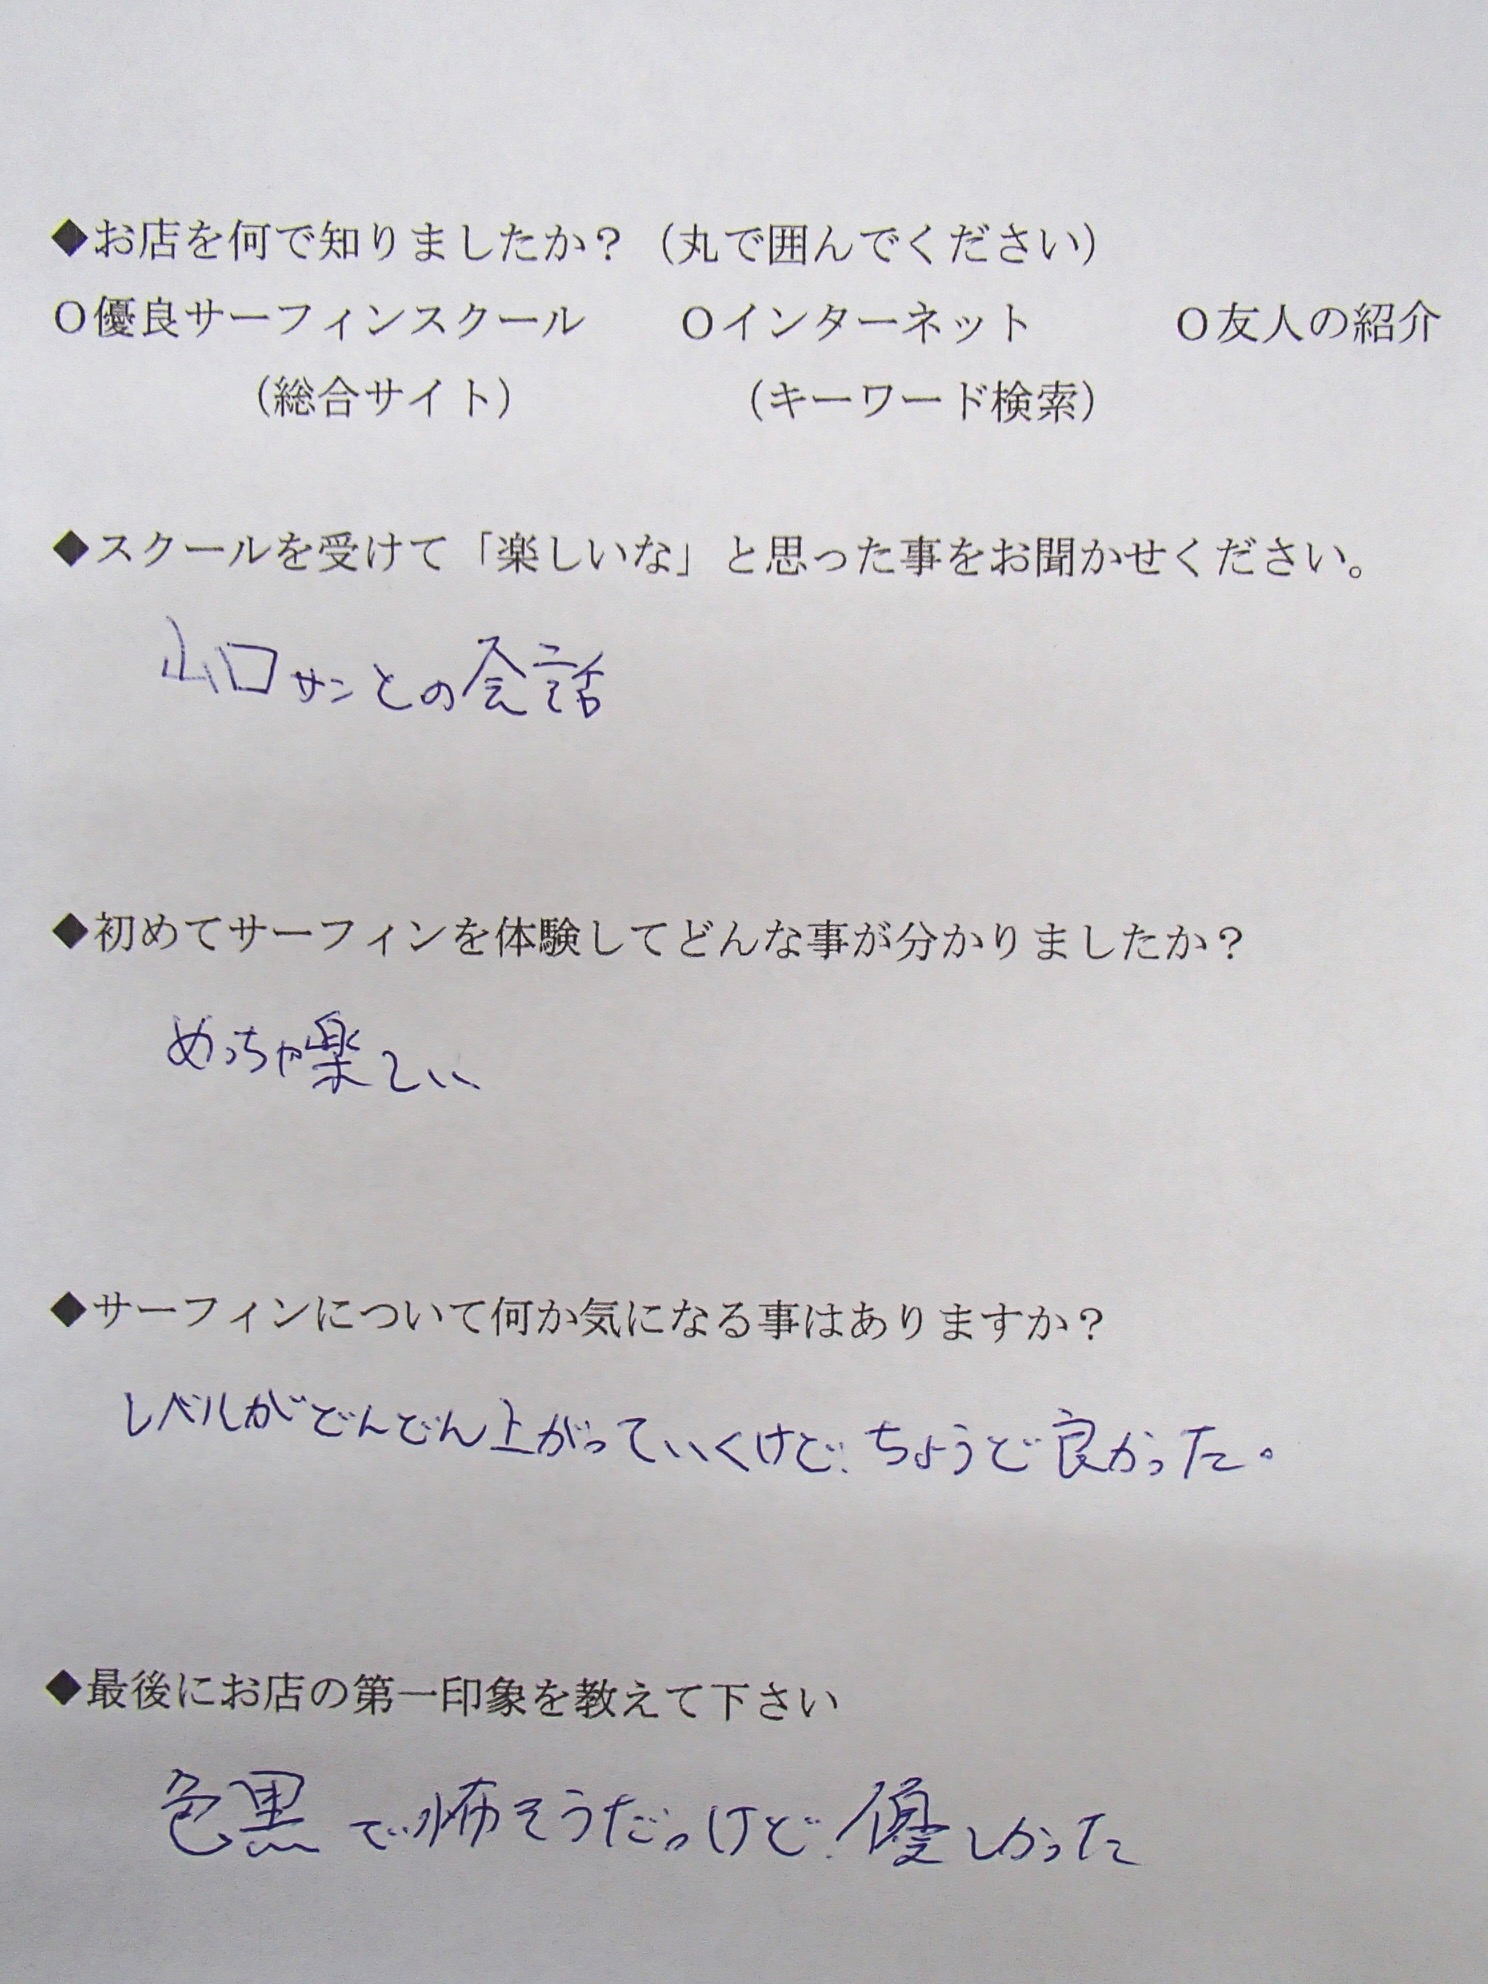 ◆お店を何で知りましたか？（丸で囲んでください）
○優良サーフィンスクール　○インターネット　○友人の紹介
（総合サイト）　（キーワード検索）
◆スクールを受けて「楽しいな」と思った事をお聞かせください。
山口サンとの会話
◆初めてサーフィンを体験してどんな事が分かりましたか？
めっちゃ楽しい
◆サーフィンについて何か気になる事はありますか？
レベルがどんどん上がっていくけど、ちょうど良かった。
◆最後にお店の第一印象を教えて下さい
色黒で怖そうだっけど、優しかった